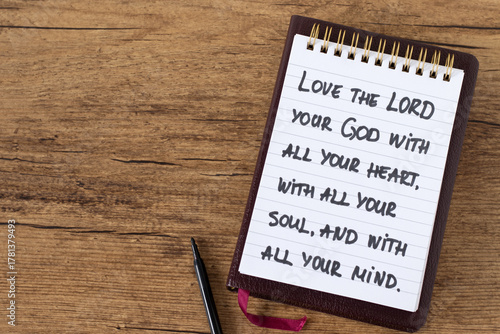 Love the Lord
your God with
all your heart,
with all your
soul, and with
all your mind.
Adobe Stock | #1781379493